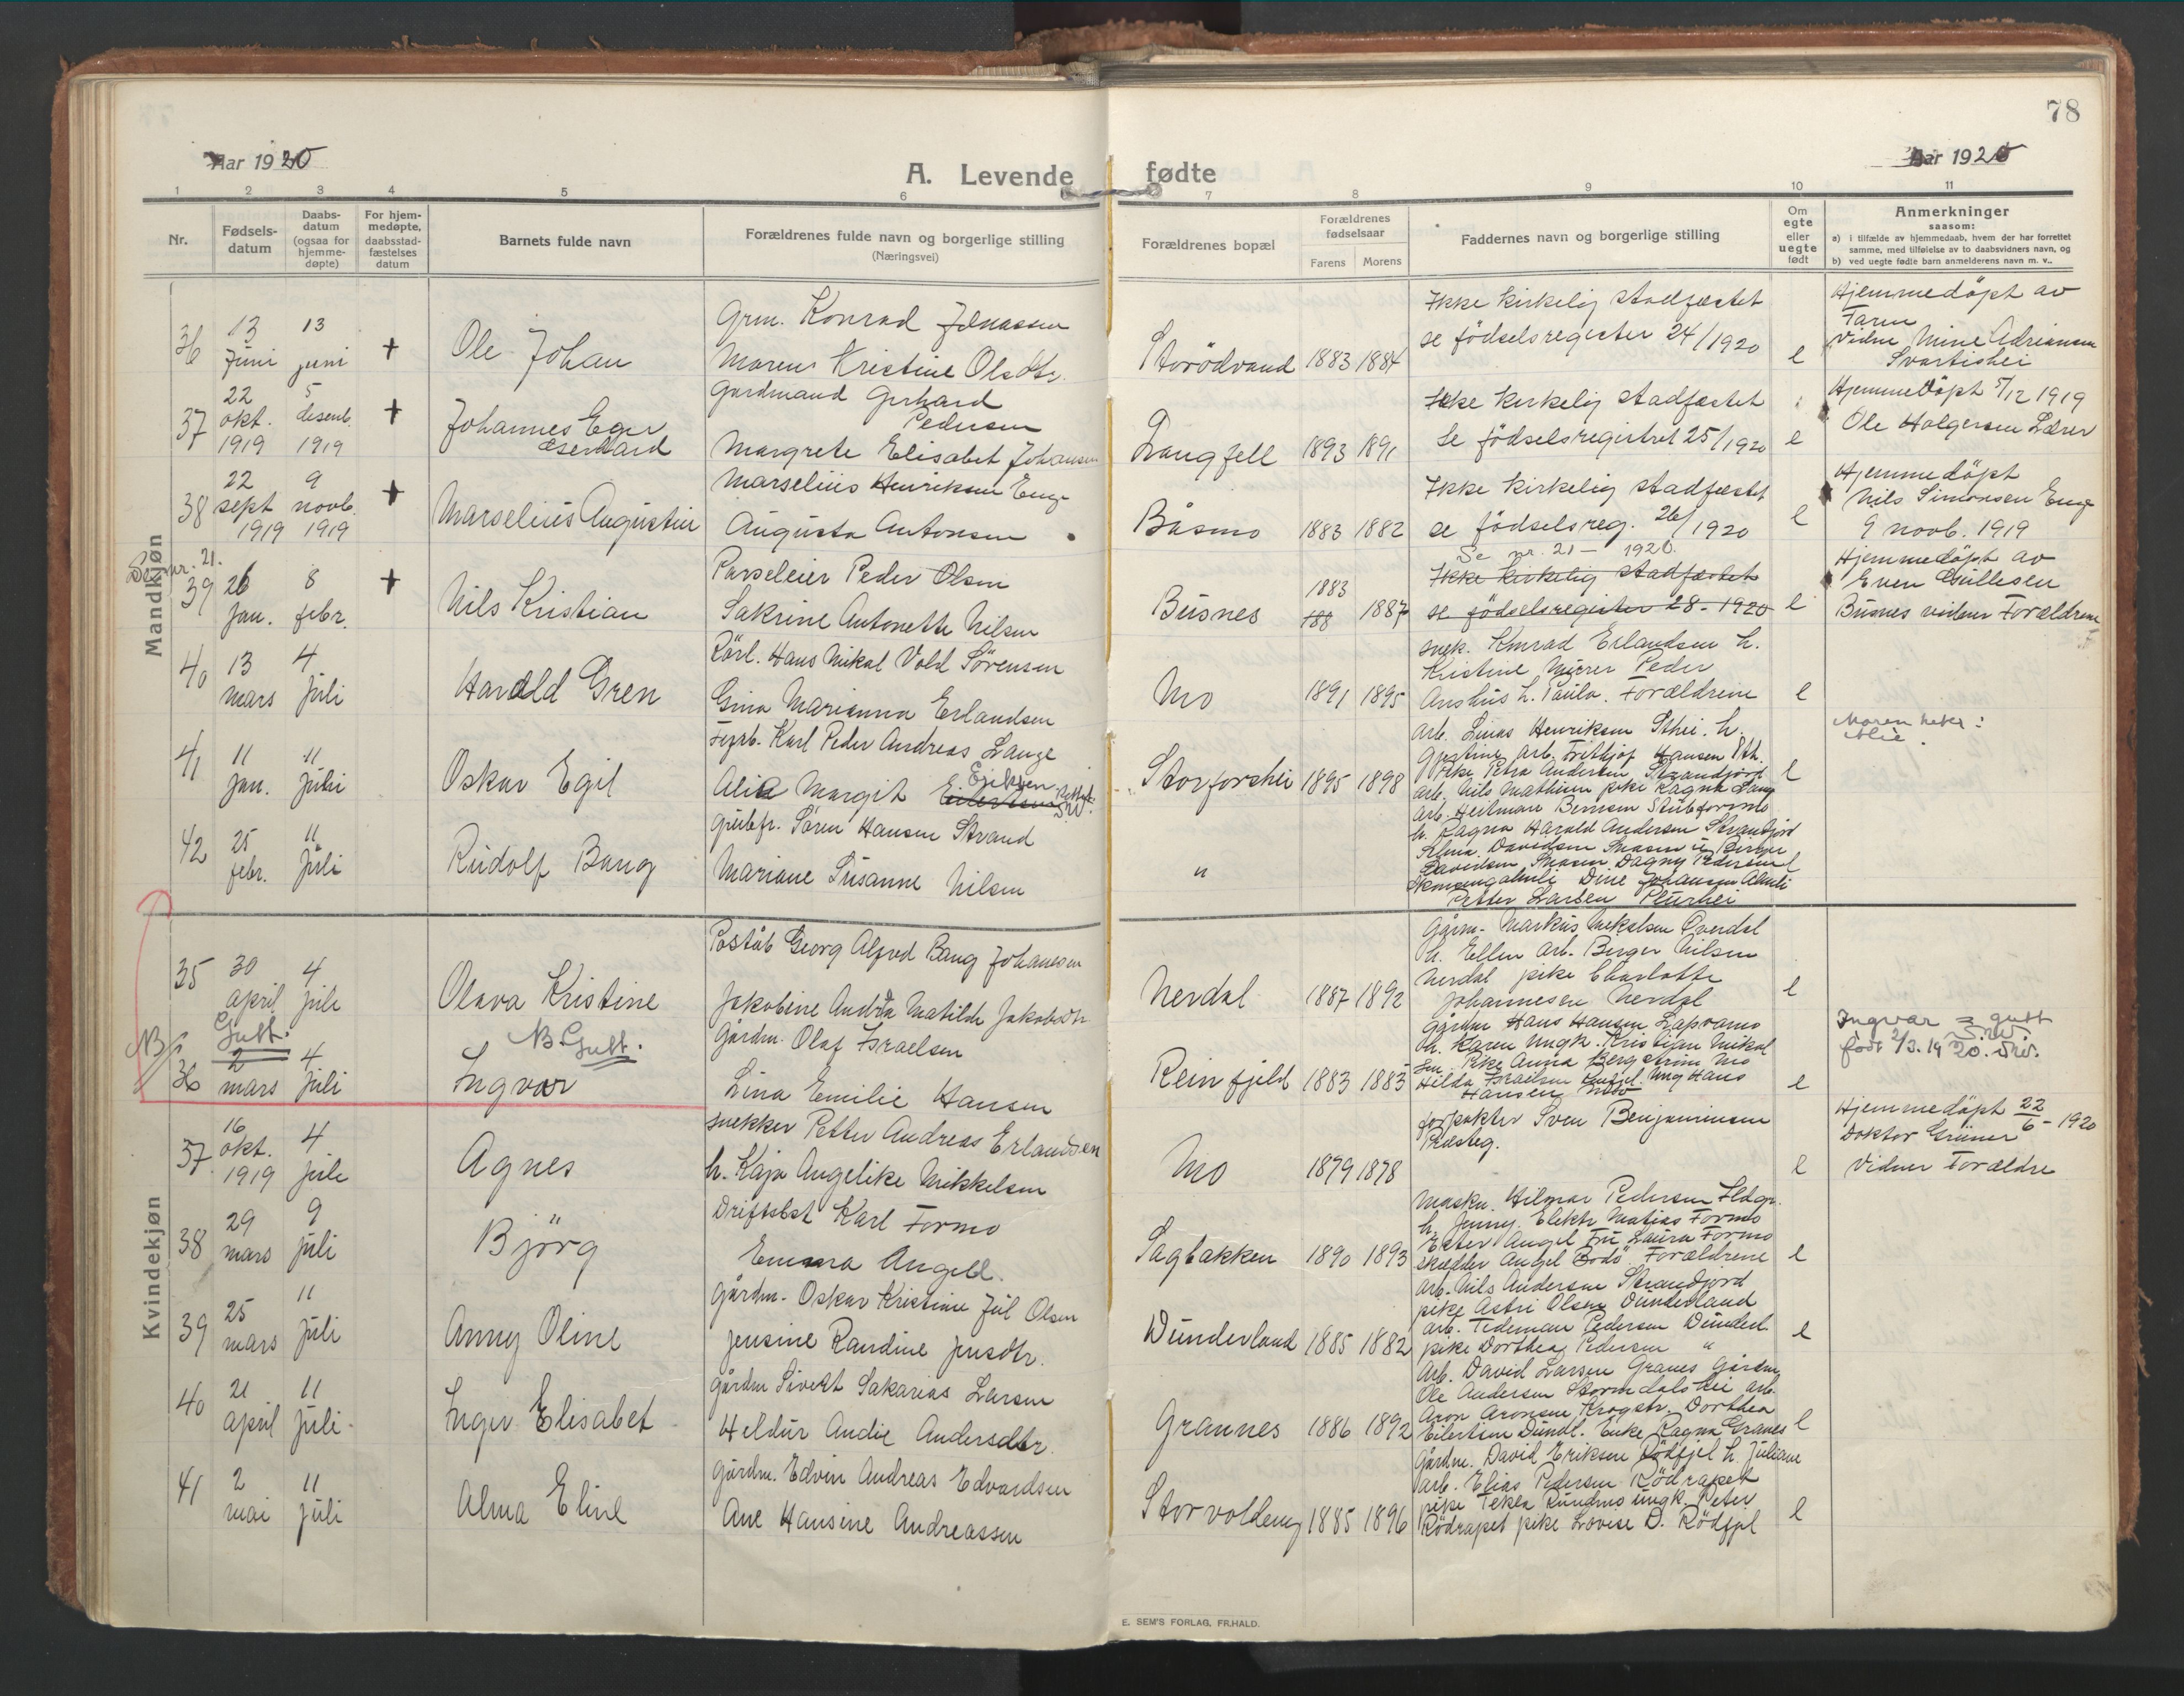 78
Aar 1920
A. Levende fødte
Aar 1920
1 2 3 4 5 6 7 8 9 10 11
Nr.
Fødsels-
datum
Daabs-
datum
(ogsaa for
hjemme-
døpte)
For hjem-
medøpte,
daabsstad-
fæstelses
datum
Barnets fulde navn
Forældrenes fulde navn og borgerlige stilling
(Næringsvei)
Forældrenes bopæl
Forældrenes
fødselsaar
Farens Morens
Faddernes navn og borgerlige stilling
Om
egte
eller
uegte
født
Anmerkninger
saasom:
a) i tilfælde av hjemmedaab, hvem der har forrettet
samme, med tilføielse av to daabsvidners navn, og
b) ved uegte fødte barn anmelderens navn m. v.
Mandkjøn
36
13 juni
13 juni
+
Ole Johan
Grm. Konrad Jonassen
Maren Kristine Olsdtr.
Storödvand
1883 1884
Ikke kirkelig stadfæstet
se födselsregister 24/1920
e
Hjemmedöpt av
Faren
Vidne Mine Adriansen
Svartishei
37
22 okt. 1919
5 desemb. 1919
+
Johannes Eger
Eserhard
Gardmand Gerhard
Pedersen
Margrete Elisabet Johansen
Langfjell
1893 1891
Ikke kirkelig stadfæstet
Se födselsregistret 25/1920
e
Hjemmedöpt 5/12 1919
Ole Holgersen Lærer
38
22 sept 1919
9 novb. 1919
+
Marselius Augustin
Marselius Henriksen Eng
Augusta Antonsen
Båsmo
1883 1882
Ikke kirkelig stadfæstet
se födselsreg. 26/1920
e
Hjemmedöpt
Nils Simonsen Eng
9 novb. 1919
Se nr. 21.
39
26 jan.
8 febr.
+
Nils Kristian
Parseleier Peder Olsen
Sakrine Antonette Nilsen
Busnes
1883
188 1887
Se nr. 21 - 1920.
Ikke kirkelig stadfæstet
se födselsregister 28-1920
e
Hjemmedöpt av
Even Gullesen
Busnes vidner Forældrene
40
13 mars
4 juli
Harald Gren
Rörl. Hans Nikal Vold Sörensen
Gina Marianna Erlandsen
Mo
1891 1895
snek. Konrad Erlandsen h.
Kristine Murer Peder
Anshus h. Paula. Forældrene
e
41
11 jan.
11 juli
Oskar Egil
Fejrb. Karl Peder Andreas Lange
Alie Margit Eilertsen Eriksen
Storforshei
1895 1898
arb. Linas Henriksen Sthei. h.
Gjertine arb. Frithjof Hansen Sth.
Pike Petra Andersen Strandjord
arb. Nils Mathisen pike Ragna Lang
e
Moren heter:
Alie.
42
25 febr.
11 juli
Rudolf Bang
Grubfr. Sören Hansen Strand
Mariane Susanne Nilsen
"
arb. Heitman Bernsen Stubformo
h. Ragna Harald Andersen Strandjord
Alma Davidsen Snasen u Birger
Davidsen Snasen Dagny Pedersen
Dine Johansen Almli
Petter Larsen Plurhei
e
Kvindekjøn
35
30 april
4 juli
Olava Kristine
Poståb Georg Alfred Bang Johansen
Jakobine Andrea Matilde Jakobsdtr
Nerdal
1887 1892
Gårm. Markus Mekalsen Överdal
h. Ellen arb. Berger Nilsen
Nerdal pike Charlotte
Johannesen Nerdal
e
NB
Gutt:
36
2 mars
4 juli
NB Gutt.
Ingvar
Gårdm. Olaf Israelsen
Lina Emilie Hansen
Reinfjeld
1883 1883
Gårdm Hans Hansen Lapvamo
h. Karen Ungk. Kristian Mikal
sen Pike Anna Bergström Mo
Hilda Israelsen Reinfjel. Ung Hans
Hansen Mo
e
Ingvar = gutt
født 2/3. 1920.
37
16 okt. 1919
4 juli
Agnes
snekker Petter Andreas Erlandsen
h. Kaja Angelike Mikkelsen
Mo
1879 1878
forpakter Sven Benjaminsen
Præsteg.
e
Hjemmedöpt 22/6 - 1920
Doktor Grüner
Vidner Forældre
38
29 mars
9 juli
Björg
Driftsbst Karl Formo
Emma Angell.
Sagbakken
1890 1893
Maskn. Hilmar Pedersen Ildgr.
h. Jenny. Elektr Matias Formo
Ester Angel Fru Laura Formo
skredder Angel Bodö Forældrene
e
39
25 mars
11 juli
Anny Oline
Gårdm. Oskar Kristine Jul Olsen
Jensine Randine Jensdtr.
Dunderland
1885 1882
Arb. Nils Andersen Strandjord
pike Astri Olsen Dunderland
arb. Tideman Pedersen Dunderl.
pike Dorthea Pedersen "
e
40
21 april
11 juli
Inger Elisabet
Gårdm Sivert Sakarias Larsen
Heldur Andie Andersdtr.
Grannes
1886 1892
Arb. David Larsen Granes Gårdm
Ole Andersen Stormdalshei arb.
Aron Aronsen Krogstr. Dorthea
Eilertsen Dundl. Enke Ragna Granes
e
41
2 mai
11 juli
Alma Eline
Gårdm. Edvin Andreas Edvardsen
Ane Hansine Andreassen
Storvolden
1885 1896
Gårdm. David Eriksen Rödfjel h. Juliane
arb. Elias Pedersen Rödrapet
pike Tekla Rundmo ungk. Peter
Rödrapet pike Lovise D. Rödfjel
e
E. SEM'S FORLAG, FR.HALD.